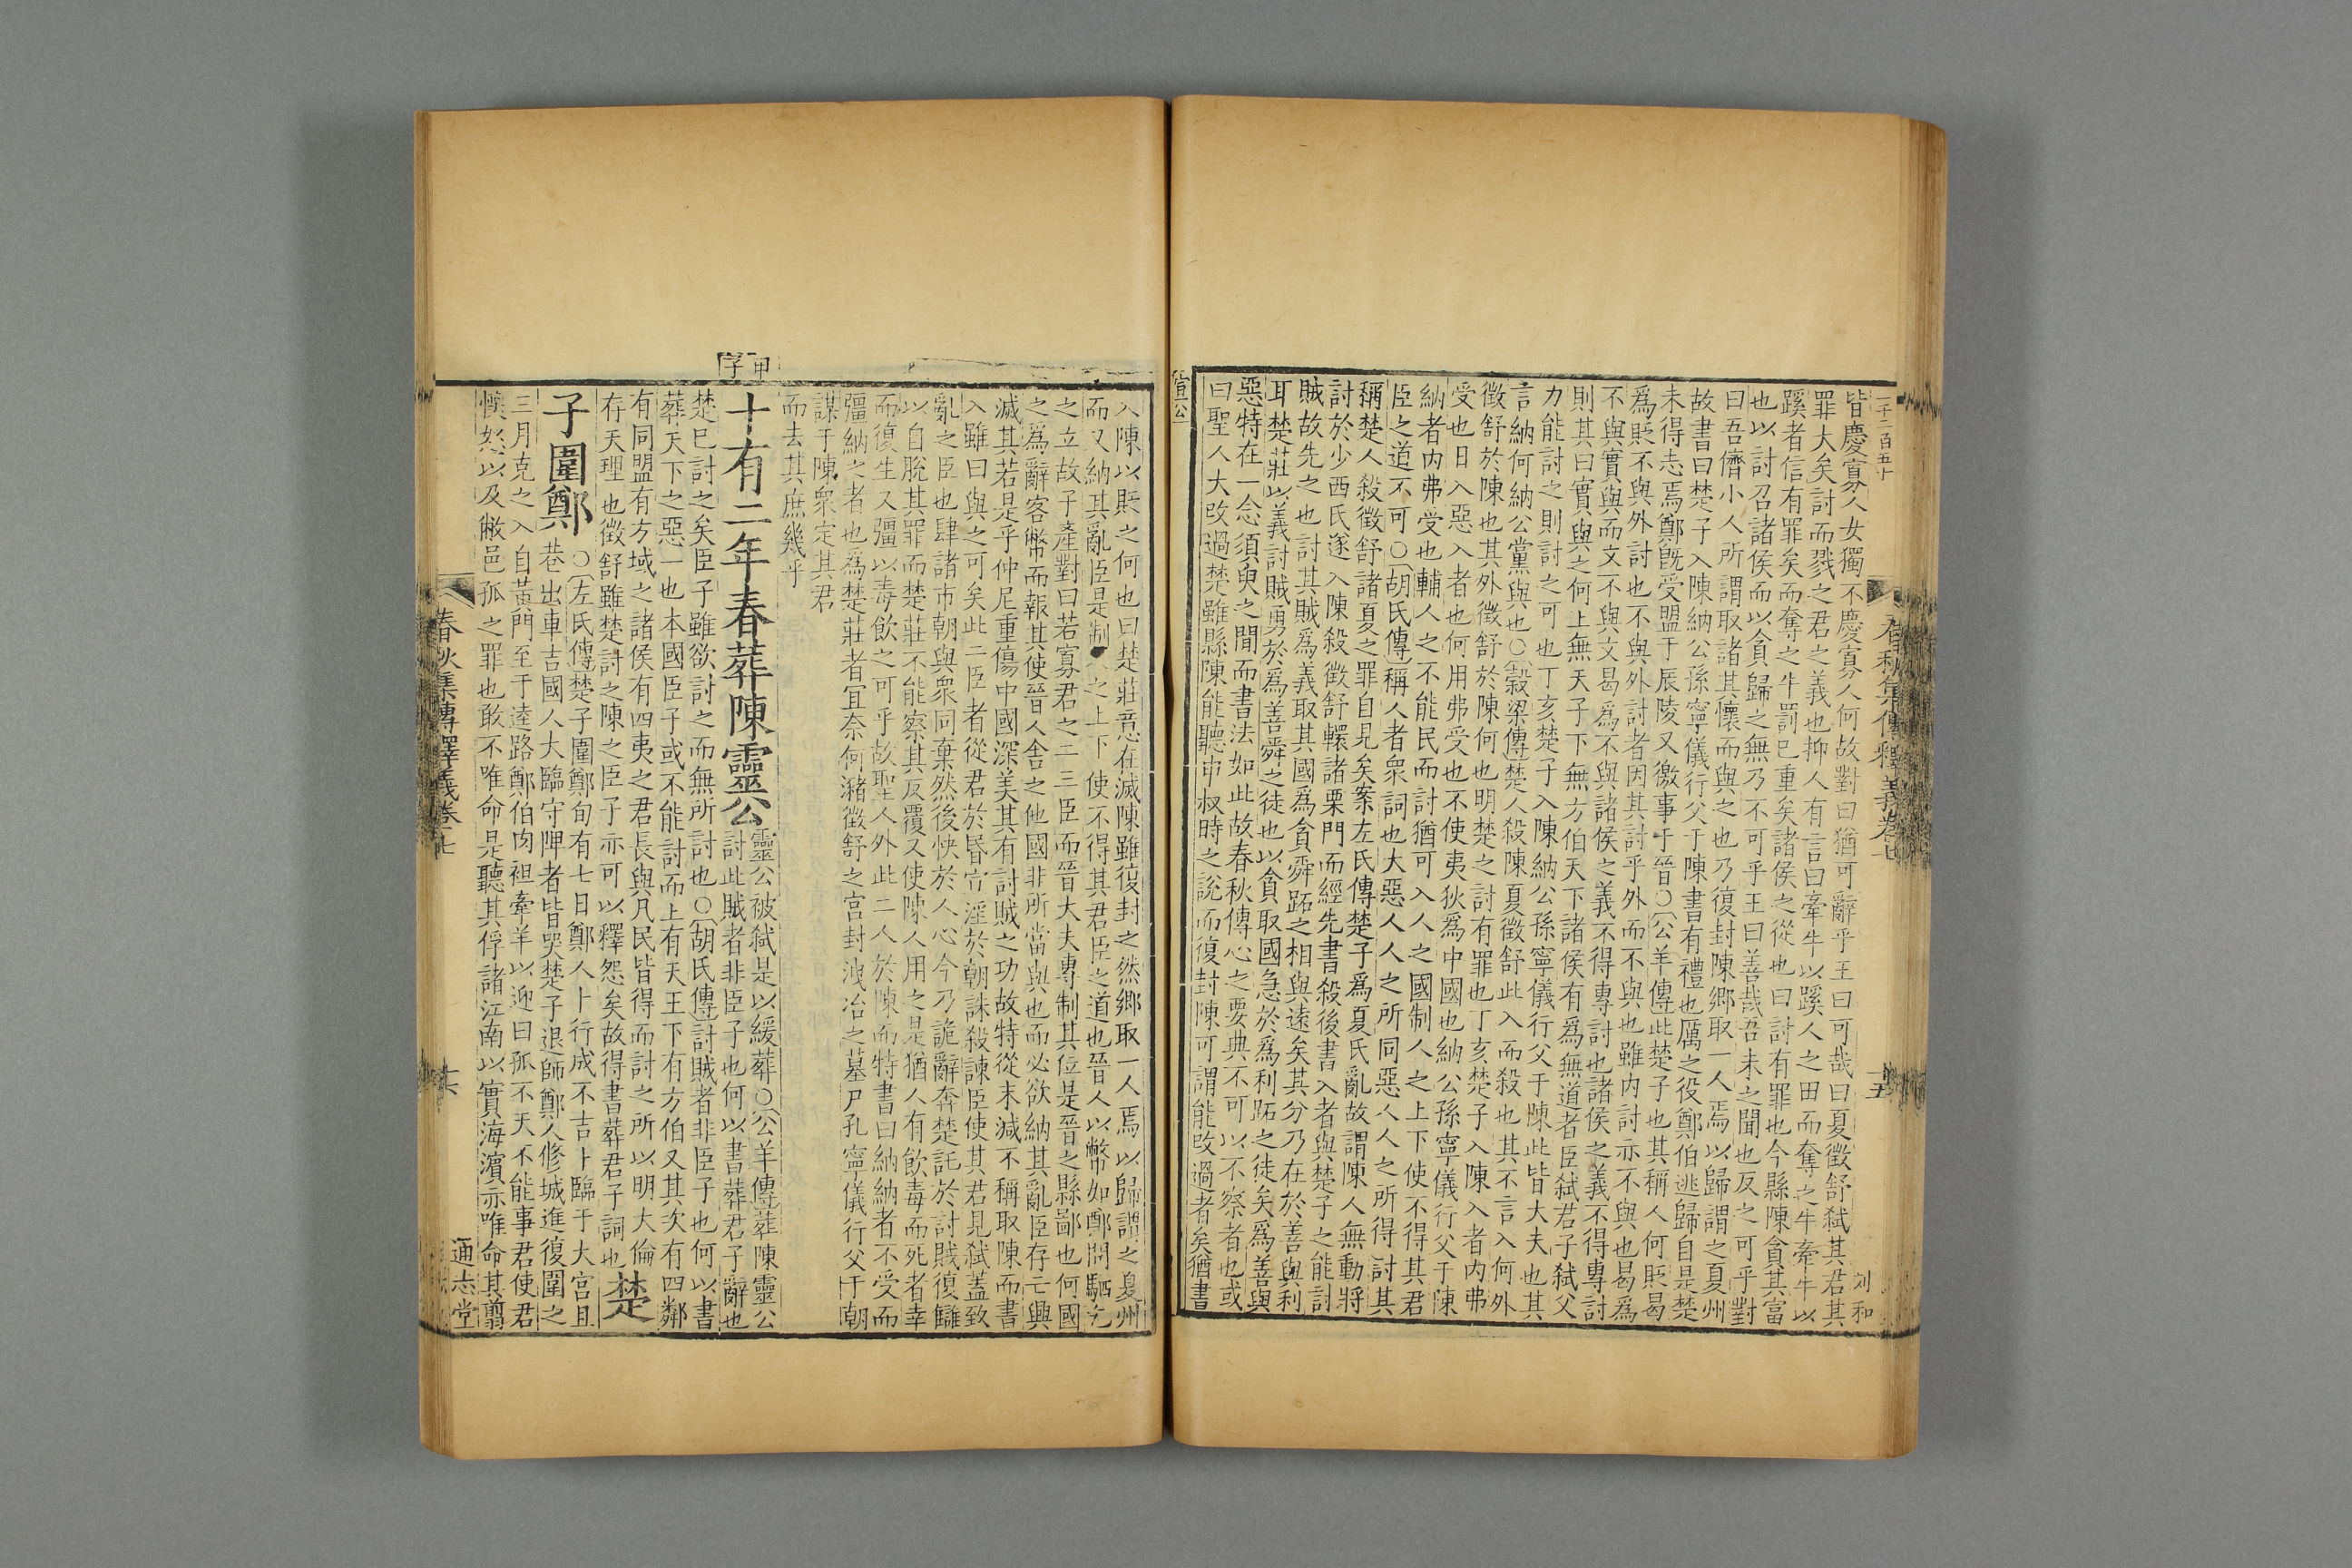 一千二百五十
皆慶寡人女獨不慶寡人何故對曰猶可辭乎王曰可哉曰夏徵舒弑其君其
罪大矣討而戮之君之義也抑人有言曰牽牛以蹊人之田而奪之牛牽牛以
蹊者信有罪矣而奪之牛罰已重矣諸侯之從也曰討有罪也今縣陳貪其富
也以討召諸侯而以貪歸之無乃不可乎王曰善哉吾未之聞也反之可乎對
曰吾儕小人所謂取諸其懷而與之也乃復封陳鄉取一人焉以歸謂之夏州
故書曰楚子入陳納公孫寧儀行父于陳書有禮也厲之役鄭伯逃歸自是楚
未得志焉鄭旣受盟于辰陵又徼事于晉〇公羊傳此楚子也其稱人何貶曷
爲貶不與外討也不與外討者因其討乎外而不與也雖内討亦不與也曷爲
不與實與而文不與文曷爲不與諸侯之義不得專討也諸侯之義不得專討
則其曰實與之何上無天子下無方伯天下諸侯有爲無道者臣弑君子弑父
力能討之則討之可也丁亥楚子入陳納公孫寧儀行父于陳此皆大夫也其
言納何納公黨與也〇穀梁傳楚人殺陳夏徵舒此入而殺也其不言入何外
徵舒於陳也其外徵舒於陳何也明楚之討有罪也丁亥楚子入陳入者内弗
受也日入惡入者也何用弗受也不使夷狄爲中國也納公孫寧儀行父于陳
納者内弗受也輔人之不能民而討猶可入人之國制人之上下使不得其君
臣之道不可〇胡氏傳稱人者衆詞也大惡人人之所同惡人人之所得討其
稱楚人殺徵舒諸夏之罪自見矣案左氏傳楚子爲夏氏亂故謂陳人無動將
討於少西氏遂入陳殺徵舒轘諸栗門而經先書殺後書入者與楚子之能討
賊故先之也討其賊爲義取其國爲貪舜跖之相與遠矣其分乃在於善與利
耳楚莊以義討賊勇於爲善舜之徒也以貪取國急於爲利跖之徒矣爲善與
惡特在一念須臾之間而書法如此故春秋傳心之要典不可以不察者也或
曰聖人大改過楚雖縣陳能聽申叔時之說而復封陳可謂能改過者矣猶書
宣公
春秋集傳釋義卷七
十五
刘和
入陳以貶之何也曰楚莊意在滅陳雖復封之然鄉取一人焉以歸謂之夏州
而又納其亂臣是制人之上下使不得其君臣之道也晉人以幣如鄭問駟乞
之立故子產對曰若寡君之二三臣而晉大夫專制其位是晉之縣鄙也何國
之爲辭客幣而報其使晉人舍之他國非所當與也而必欲納其亂臣存亡興
滅其若是乎仲尼重傷中國深美其有討賊之功故特從末減不稱取陳而書
入雖曰與之可矣此二臣者從君於昏宣淫於朝誅殺諫臣使其君見弑蓋致
亂之臣也肆諸市朝與衆同棄然後快於人心今乃詭辭奔楚託於討賊復讎
以自脫其罪而楚莊不能察其反覆又使陳人用之是猶人有飲毒而死者幸
而復生又彊以毒飲之可乎故聖人外此二人於陳而特書曰納納者不受而
彊納之者也爲楚莊者宜奈何瀦徵舒之宮封洩冶之墓尸孔寧儀行父于朝
謀于陳衆定其君
而去其庶幾乎
甲子
十有二年春葬陳靈公
靈公被弑是以緩葬〇公羊傳葬陳靈公
討此賊者非臣子也何以書葬君子辭也
楚已討之矣臣子雖欲討之而無所討也〇胡氏傳討賊者非臣子也何以書
葬天下之惡一也本國臣子或不能討而上有天王下有方伯又其次有四鄰
有同盟有方域之諸侯有四夷之君長與凡民皆得而討之所以明大倫
存天理也徵舒雖楚討之陳之臣子亦可以釋怨矣故得書葬君子詞也
楚
子圍鄭
〇左氏傳楚子圍鄭旬有七日鄭人卜行成不吉卜臨于大宮且
巷出車吉國人大臨守陴者皆哭楚子退師鄭人修城進復圍之
三月克之入自黃門至于逵路鄭伯肉袒牽羊以迎曰孤不天不能事君使君
懷怒以及敝邑孤之罪也敢不唯命是聽其俘諸江南以實海濱亦唯命其翦
春秋集傳釋義卷七
十六
通志堂